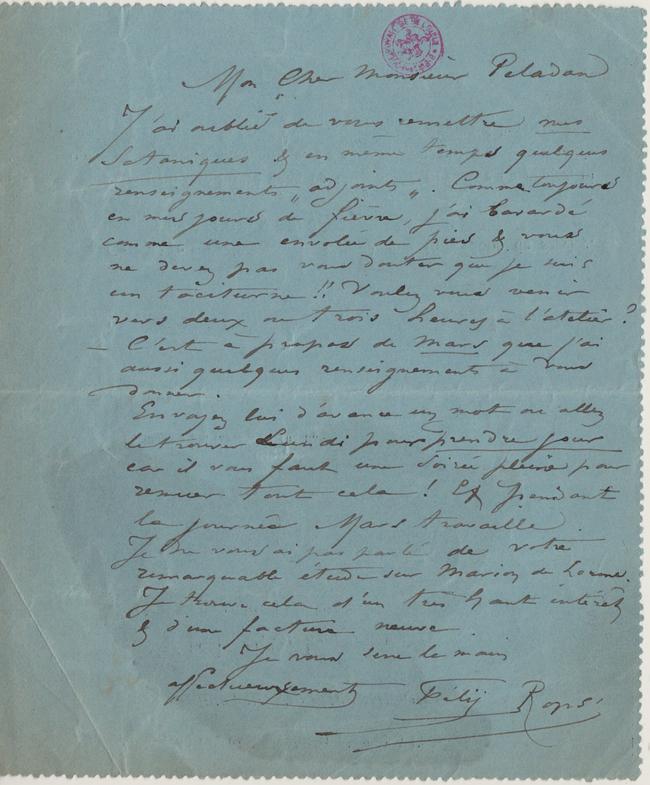 Mon Cher Monsieur Peladan
J'ai oublié de vous remettre mes
Sataniques & en même temps quelques
renseignements „ adjoints „. Comme toujours
en mes jours de fièvre, j'ai bavardé
comme une envolée de pies & vous
ne devez pas vous douter que je suis
un taciturne !! Voulez vous venir
vers deux ou trois heures à l'atelier ?
— C'est à propos de Mars que j'ai
aussi quelques renseignements à vous
donner.
Envoyez lui d'avance un mot ou allez
le trouver Lundi pour prendre jour
car il vous faut une soirée pleine pour
remuer tout cela ! Et pendant
la journée Mars travaille.
Je ne vous ai pas parlé de votre
remarquable étude sur Marion de Lorme.
Je trouve cela d'un très haut intérêt
& d'une facture neuve.
Je vous serre la main
affectueusement Félix Rops